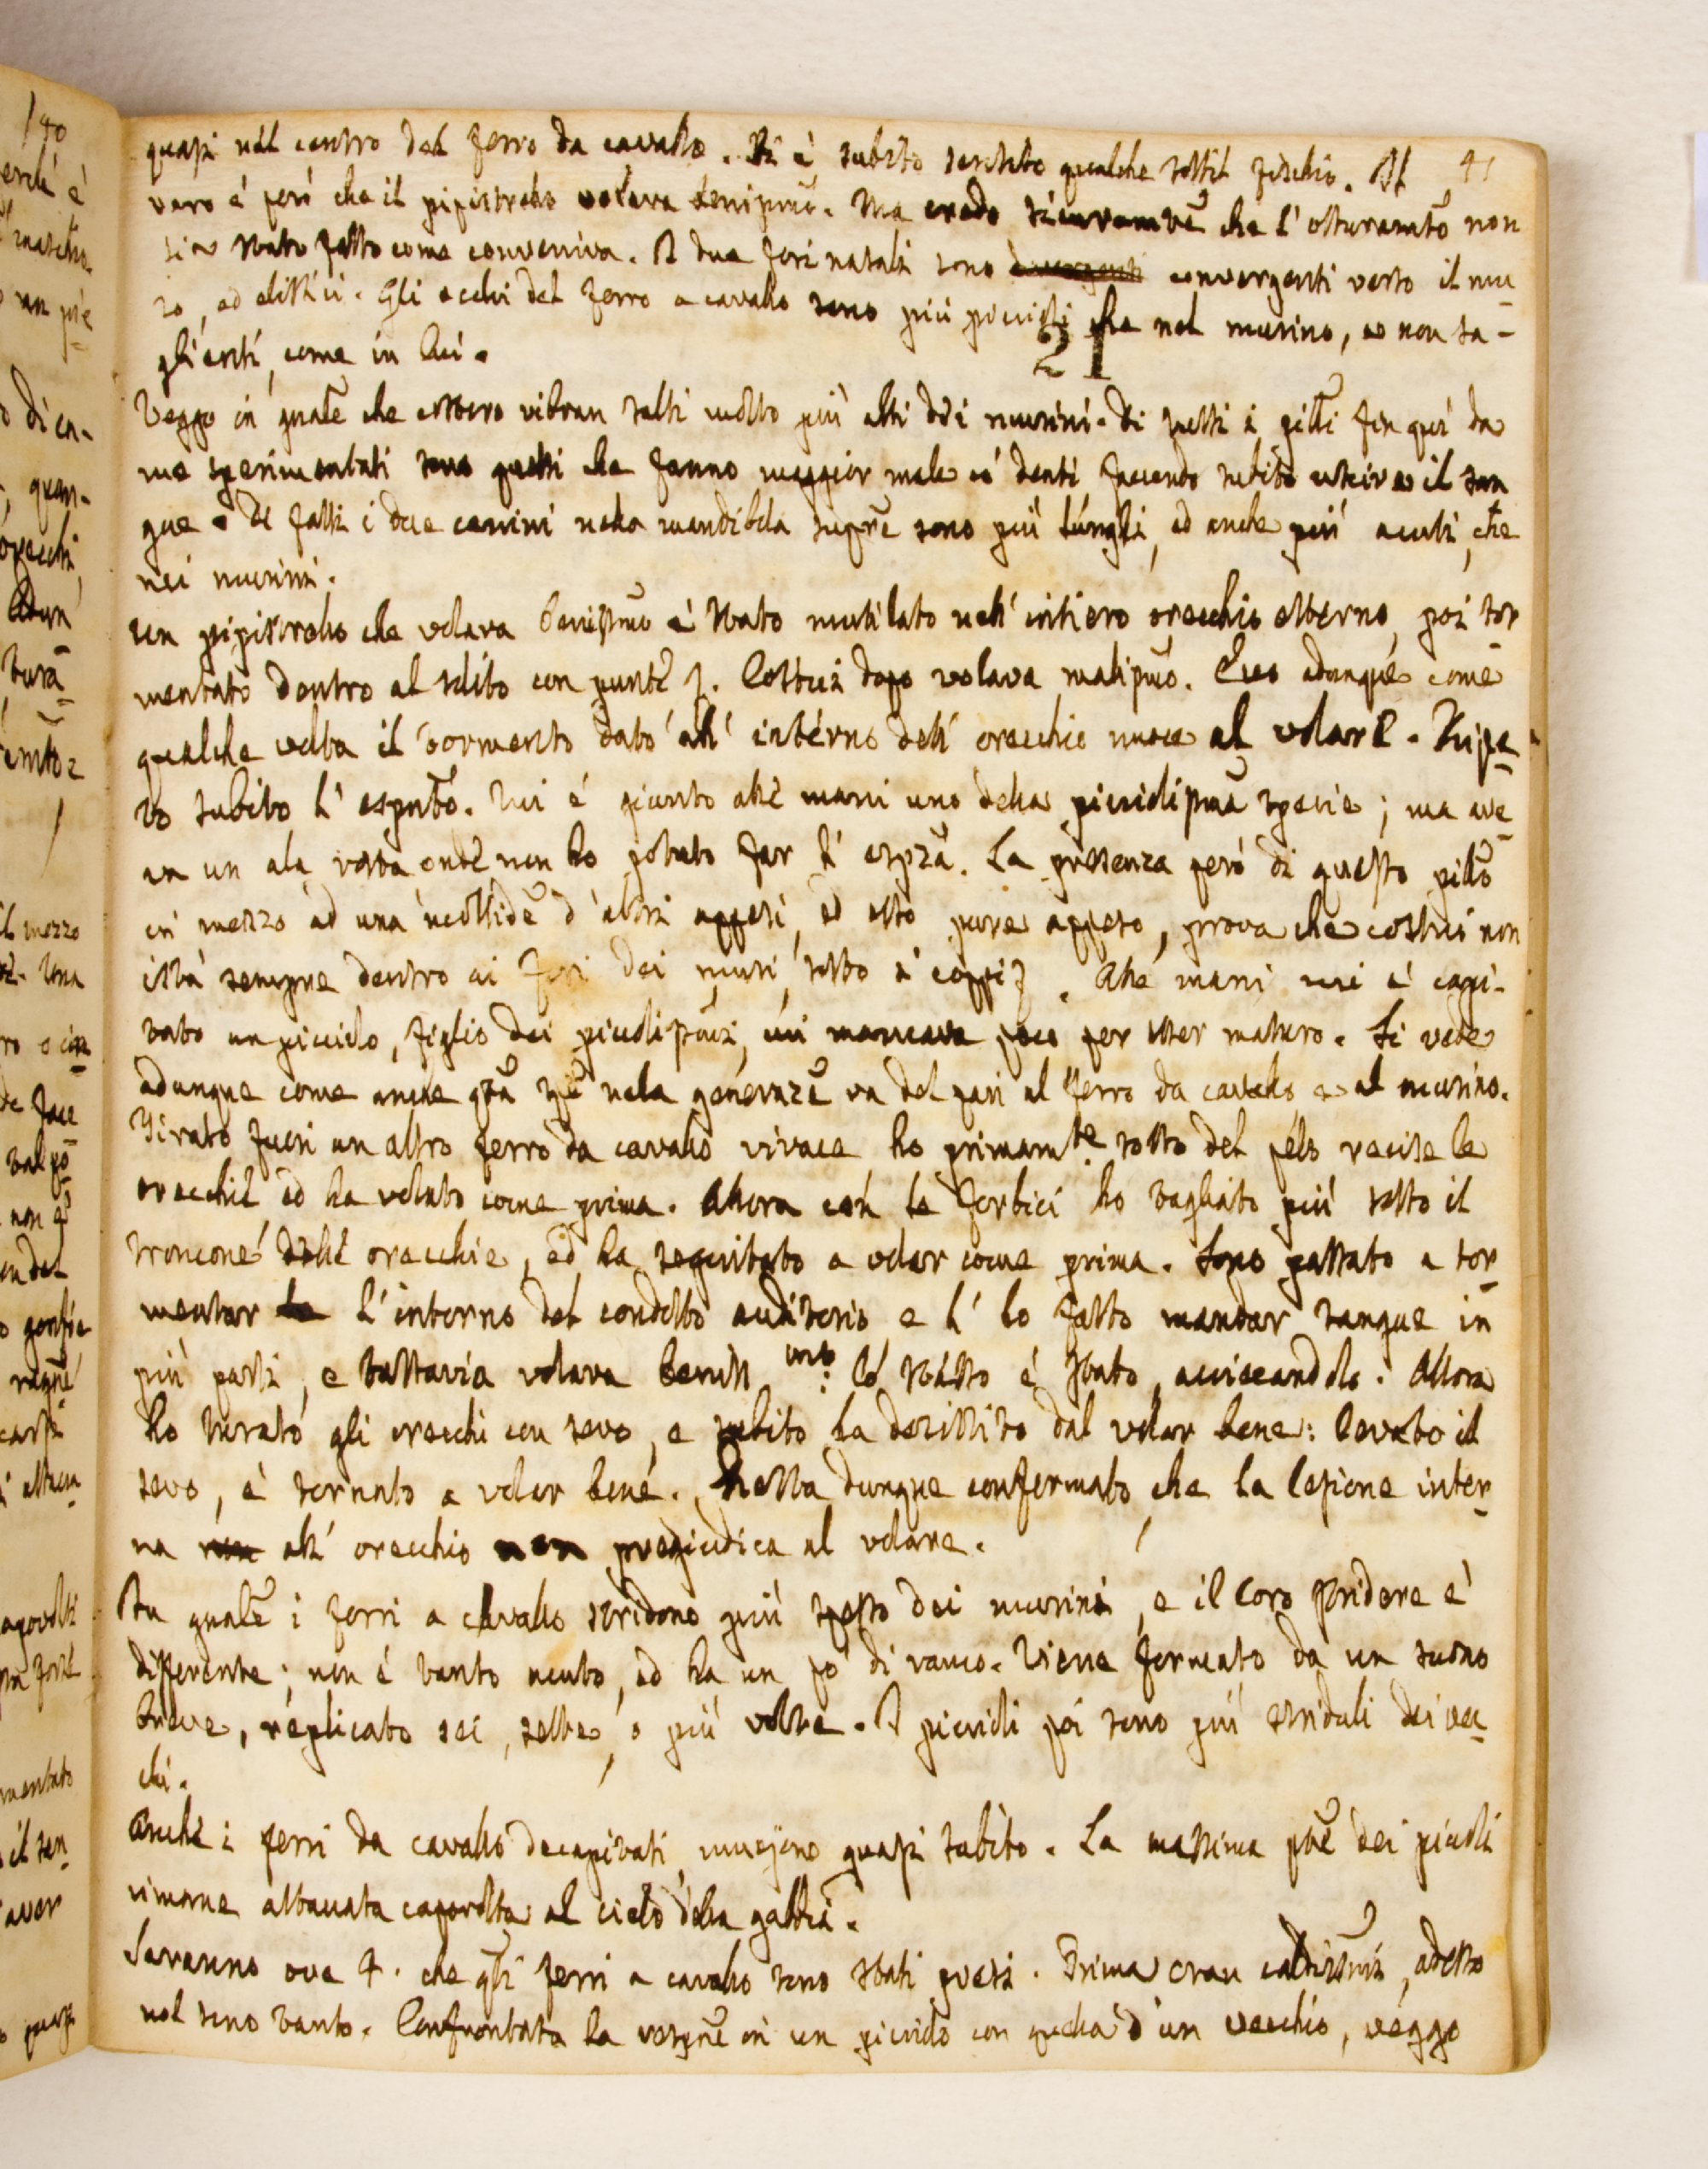 41
quasi nel centro del ferro da cavallo. Si è subito sentito qualche sottil fischio. Il
vero é però che il pipistrello volava benissmo. Ma credo sicuramte che l'otturamto non
sia stato fatto come conveniva. I due fori nasali sono convergenti verso il mu-
so, ed elittici. Gli occhi del ferro a cavallo sono più piccioli che nel murino, e non sa-
glienti, come in lui.
21
Veggo in gnale che costoro vibran salti molto più alti dei murini. Di tutti i pilli fin quì da
me sperimentati sono questi che fanno maggior male co' denti facendo subito uscire il san
gue. Di fatti i due canini nella mandibola supre sono più lunghi, ed anche più acuti, che
nei murini.
Un pipistrello che volava benissmo è stato mutilato nell'intiero orecchio esterno, poi tor
mentato dentro al solito con punte. Costui dopo volava malissmo. Ecco adunque come
qualche volta il tormento dato all'interno dell'orecchio nuoce al volare. Ripe-
to subito l'espmto. Mi é giunto alle mani uno della picciolissma specie; ma ave-
a un ala rotta onde non ho potuto far l'espza. La presenza però di questo pillo
in mezzo ad una moltitide d'altri appesi, ed esso pure appeso, prova che costui non
istà sempre dentro ai fori dei muri, sotto a' coppi. Alle mani mi è capi-
tato un picciolo, figlio dei picolissmi, cui mancava poco per esser maturo. Si vede
adunque come anche qsta spe nella generaze va del pari al ferro da cavallo e al murino.
Tirato fuori un altro ferro da cavallo vivace ho primamte. sotto del pelo recise le
orecchie ed ha volato come prima. Allora con le forbici ho tagliato più sotto il
troncone delle orecchie, ed ha seguitato a volar come prima. Sono passato a tor-
mentar l'interno del condotto auditorio e l'ho fatto mandar sangue in
più parti, e tuttavia volava beniss imo: lo stesso é stato, accieandolo. Allora
ho turato gli orecchi con sevo, e subito ha desistito dal volar bene: levato il
sevo, è tornato a volar bene. Resta dunque confermato che la lesione inter-
na all'orecchio non pregiudica al volare.
In gnale i ferri a cavallo stridono più spesso dei murini, e il loro stridere è
differente; non é tanto acuto, ed ha un pò di rauco. Viene formato da un suono
breve, replicato sei, sette, o più volte. I piccioli poi sono più striduli dei vec-
chi.
Anche i ferri da cavallo decapitati muojono quasi subito. La massima pte dei picoli
rimane attaccata capovolta al cielo della gabbia.
Saranno ore 4. che qsti ferri a cavallo sono stati presi. Prima eran caldissmi, adesso
nol sono tanto. Confrontata la in un picciolo con quella d'un vecchio, veggo